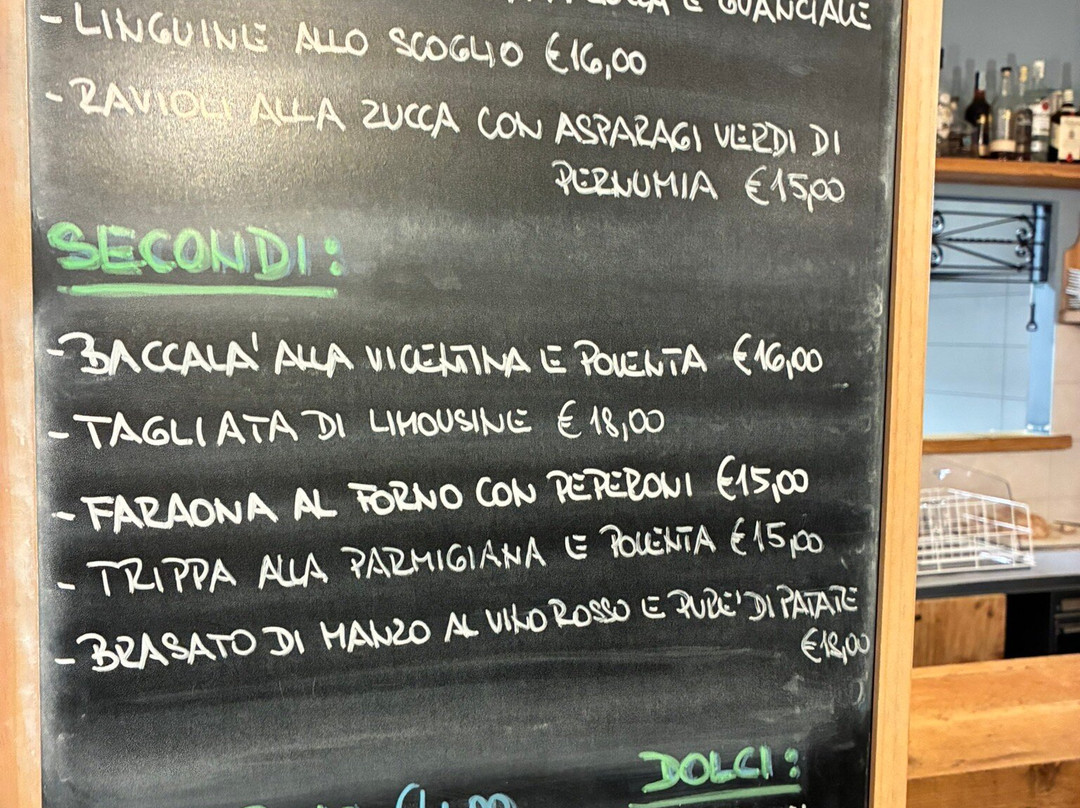 E GUANCIALE
- LINGUINE ALLO SCOGLIO €16,00
- RAVIOLI ALLA ZUCCA CON ASPARAGI VERDI DI
PERNUMIA €15,00
SECONDI:
- BACCALA' ALLA VICENTINA E POLENTA €16,00
- TAGLIATA DI LIMOUSINE € 18,00
- FARAONA AL FORNO CON PEPERONI €15,00
- TRIPPA ALLA PARMIGIANA E POLENTA €15,00
- BRASATO DI MANZO AL VINO ROSSO E PURE' DI PATATE
€18,00
DOLCI: